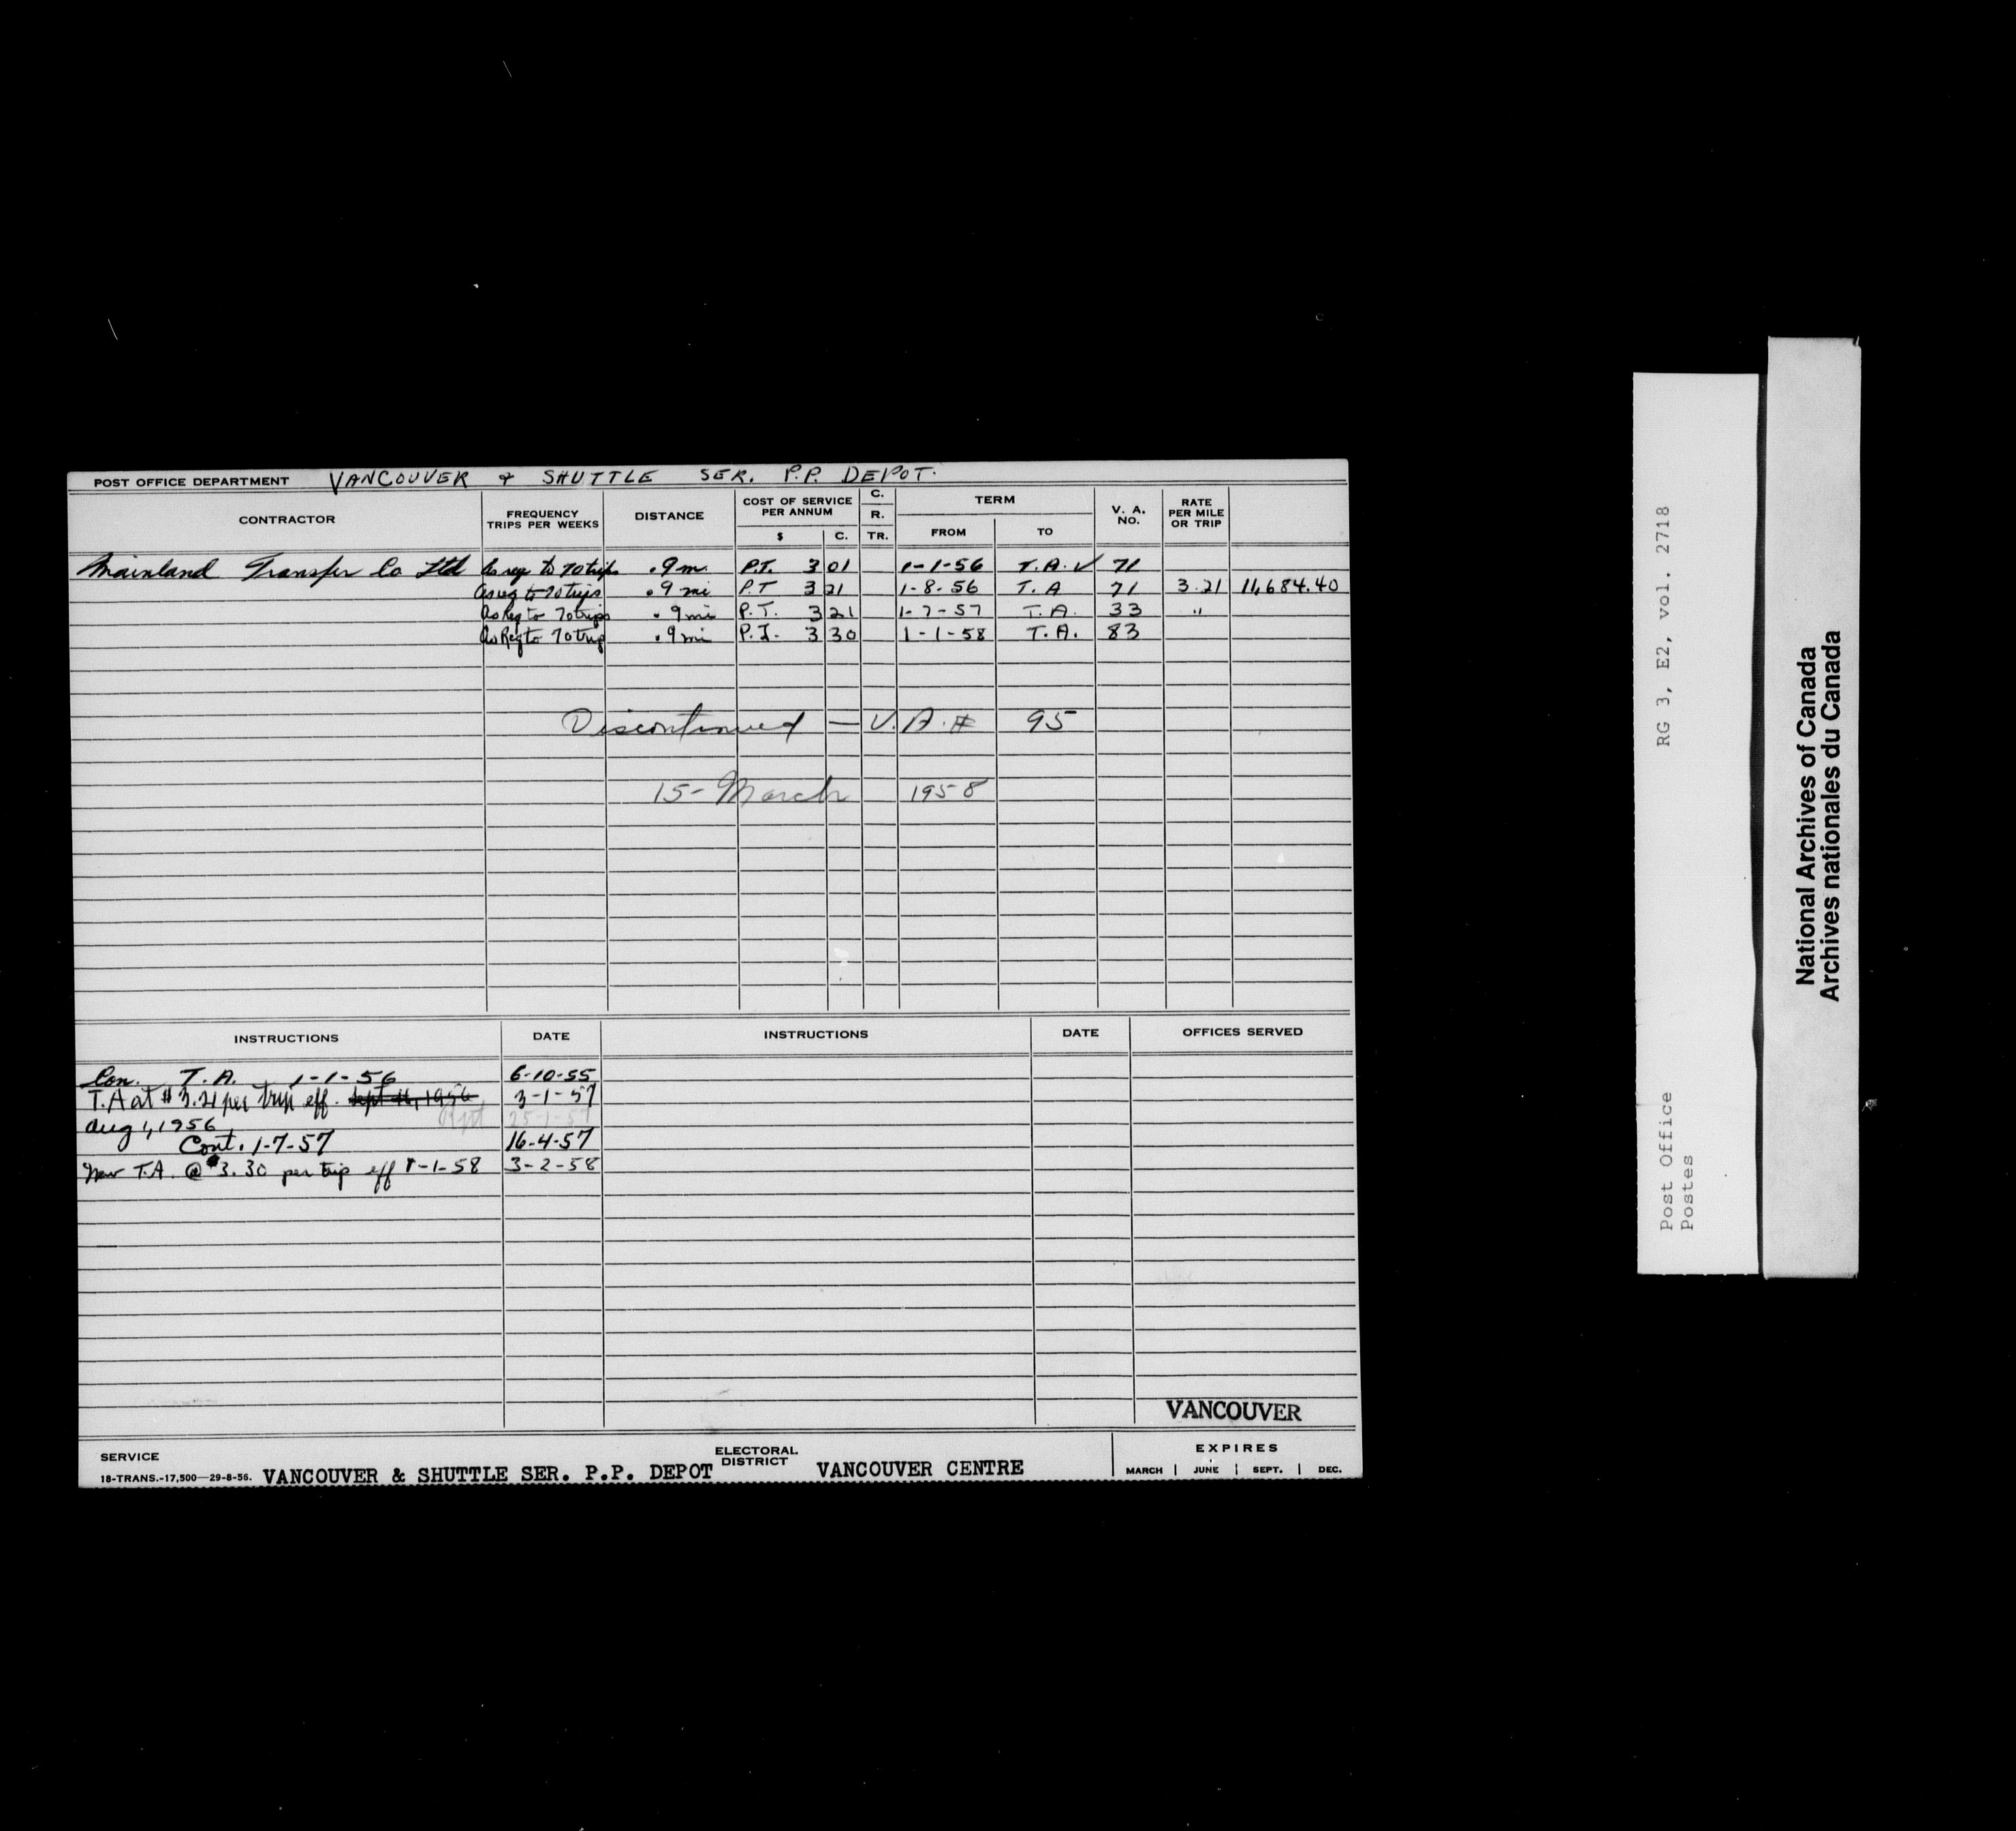 POST OFFICE DEPARTMENT VANCOUVER & SHUTTLE SER. P.P. DEPOT.
CONTRACTOR FREQUENCY TRIPS PER WEEKS DISTANCE COST OF SERVICE PER ANNUM $ C. C. R. TR. TERM FROM TO V. A. NO. RATE PER MILE OR TRIP
Mainland Transfer Co Ltd As req to 70 trips .9 m. P.T. 3 01 1-1-56 T.A. ✓ 71
As req to 70 trips .9 mi P.T 3 21 1-8-56 T.A 71 3.21 11,684.40
As Req to 70 trips .9 mi P.T. 3 21 1-7-57 T.A. 33 "
As Req to 70 trip .9 mi P.T. 3 30 1-1-58 T.A. 83
Discontinued — V.A.# 95
15- March 1958
INSTRUCTIONS DATE INSTRUCTIONS DATE OFFICES SERVED
Con. T.A. 1-1-56 6-10-55
T.A at $3.21 per trip eff. Sept 1956 3-1-57
Aug 1, 1956 25-1-57
Cont. 1-7-57 16-4-57
New T.A. @ $3.30 per trip eff 1-1-58 3-2-58
VANCOUVER
SERVICE
18-TRANS.-17,500—29-8-56. VANCOUVER & SHUTTLE SER. P.P. DEPOT ELECTORAL DISTRICT VANCOUVER CENTRE EXPIRES MARCH | JUNE | SEPT. | DEC.
Post Office RG 3, E2, vol. 2718
Postes
National Archives of Canada
Archives nationales du Canada